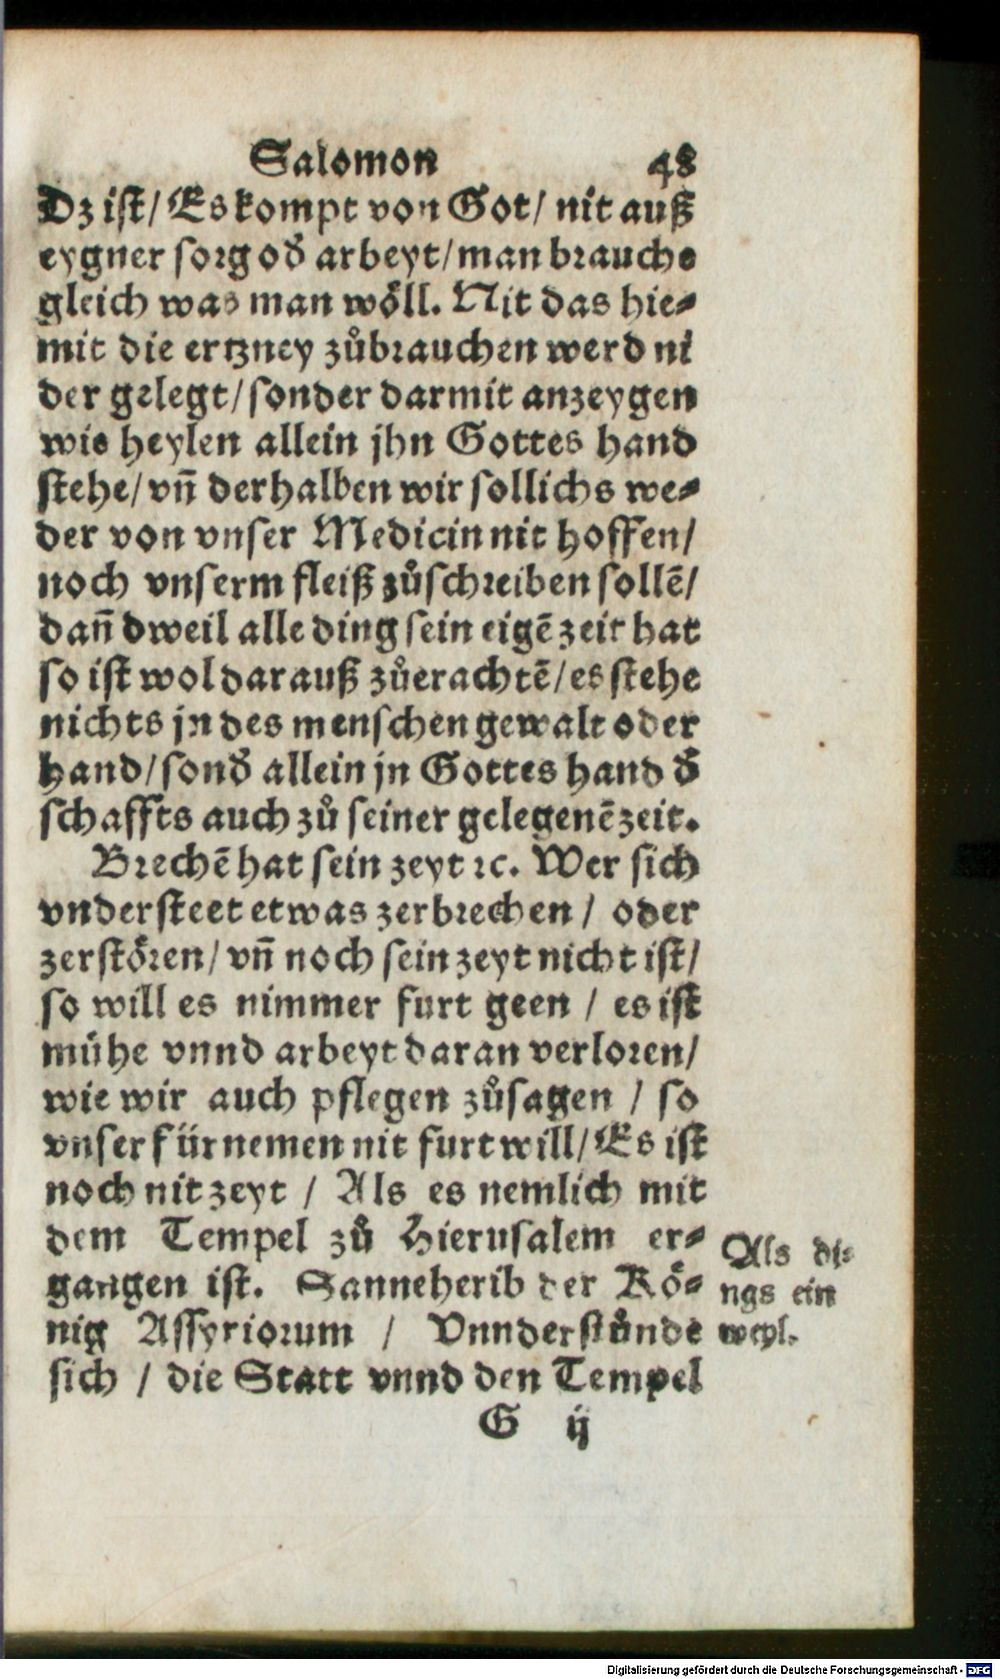 Salomon 48
Dz ist/ Es kompt von Got/ nit auß
eygner sorg oď arbeyt/ man brauche
gleich was man wöll. Nit das hie⸗
mit die ertzney zůbrauchen werd ni
der gelegt/ sonder darmit anzeygen
wie heylen allein jhn Gottes hand
stehe/ vñ derhalben wir sollichs we⸗
der von vnser Medicin nit hoffen/
noch vnserm fleiß zůschreiben sollẽ/
dañ dweil alle ding sein eigẽ zeit hat
so ist wol darauß zůerachtẽ/ es stehe
nichts jn des menschen gewalt oder
hand/ sonď allein jn Gottes hand ď
schaffts auch zů seiner gelegenẽ zeit.
Brechẽ hat sein zeyt ꝛc. Wer sich
vndersteet etwas zerbrechen / oder
zerstören/ vñ noch sein zeyt nicht ist/
so will es nimmer furt geen / es ist
mühe vnnd arbeyt daran verloren/
wie wir auch pflegen zůsagen / so
vnser fürnemen nit furt will/ Es ist
noch nit zeyt / Als es nemlich mit
dem Tempel zů Hierusalem er⸗
gangen ist. Sanneherib der Kö⸗
nig Assyriorum / Vnnderstůnde
sich / die Statt vnnd den Tempel
Als di⸗
ngs ein
weyl.
G ij
Digitalisierung gefördert durch die Deutsche Forschungsgemeinschaft - DFG